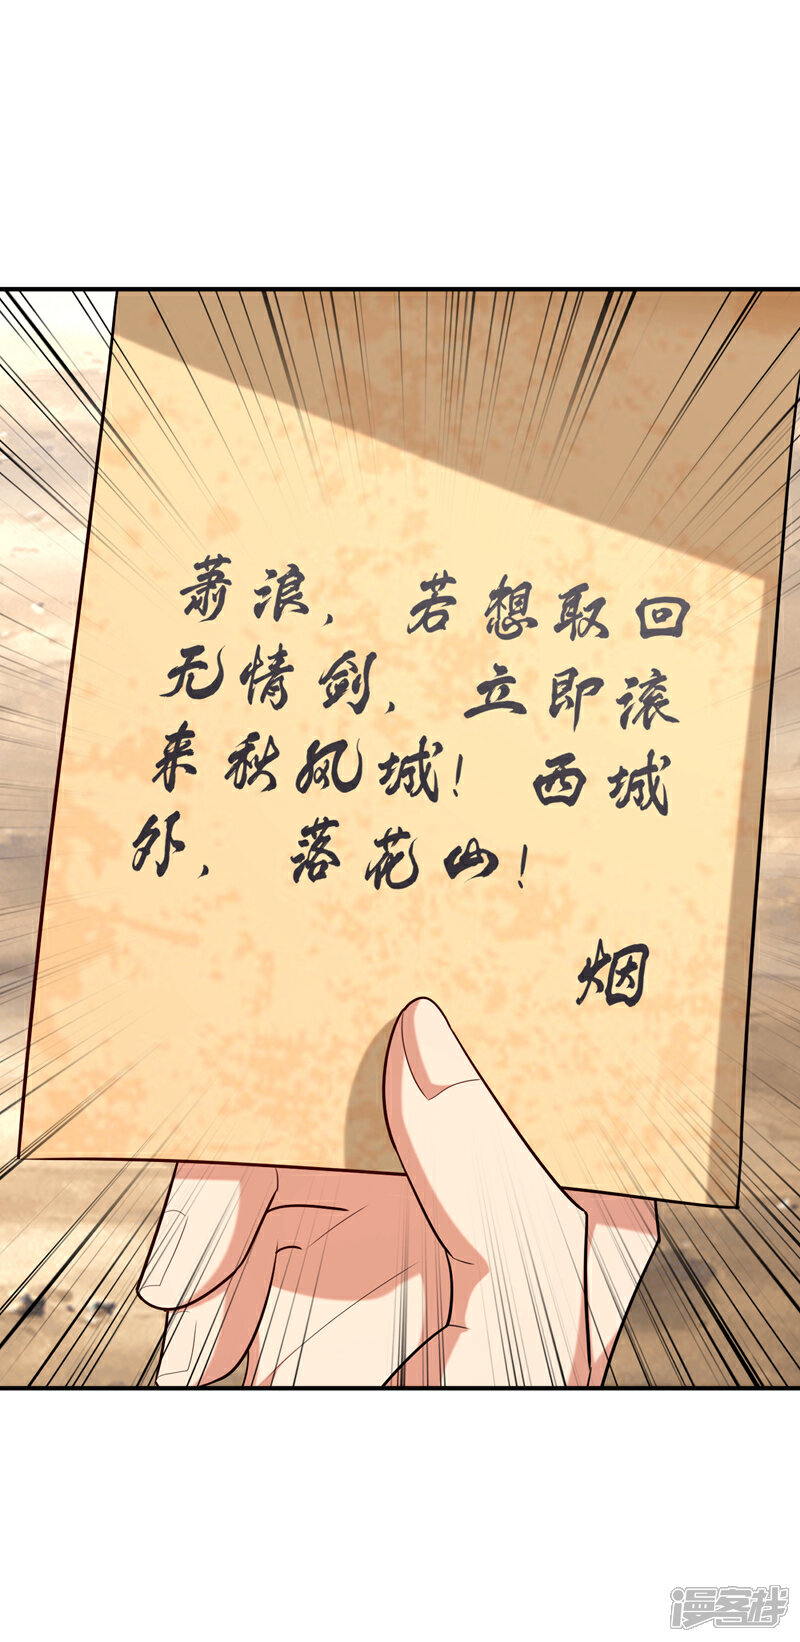 萧浪，若想取回
无情剑，立即滚
来秋风城！西城
外，落花山！
烟
漫客栈